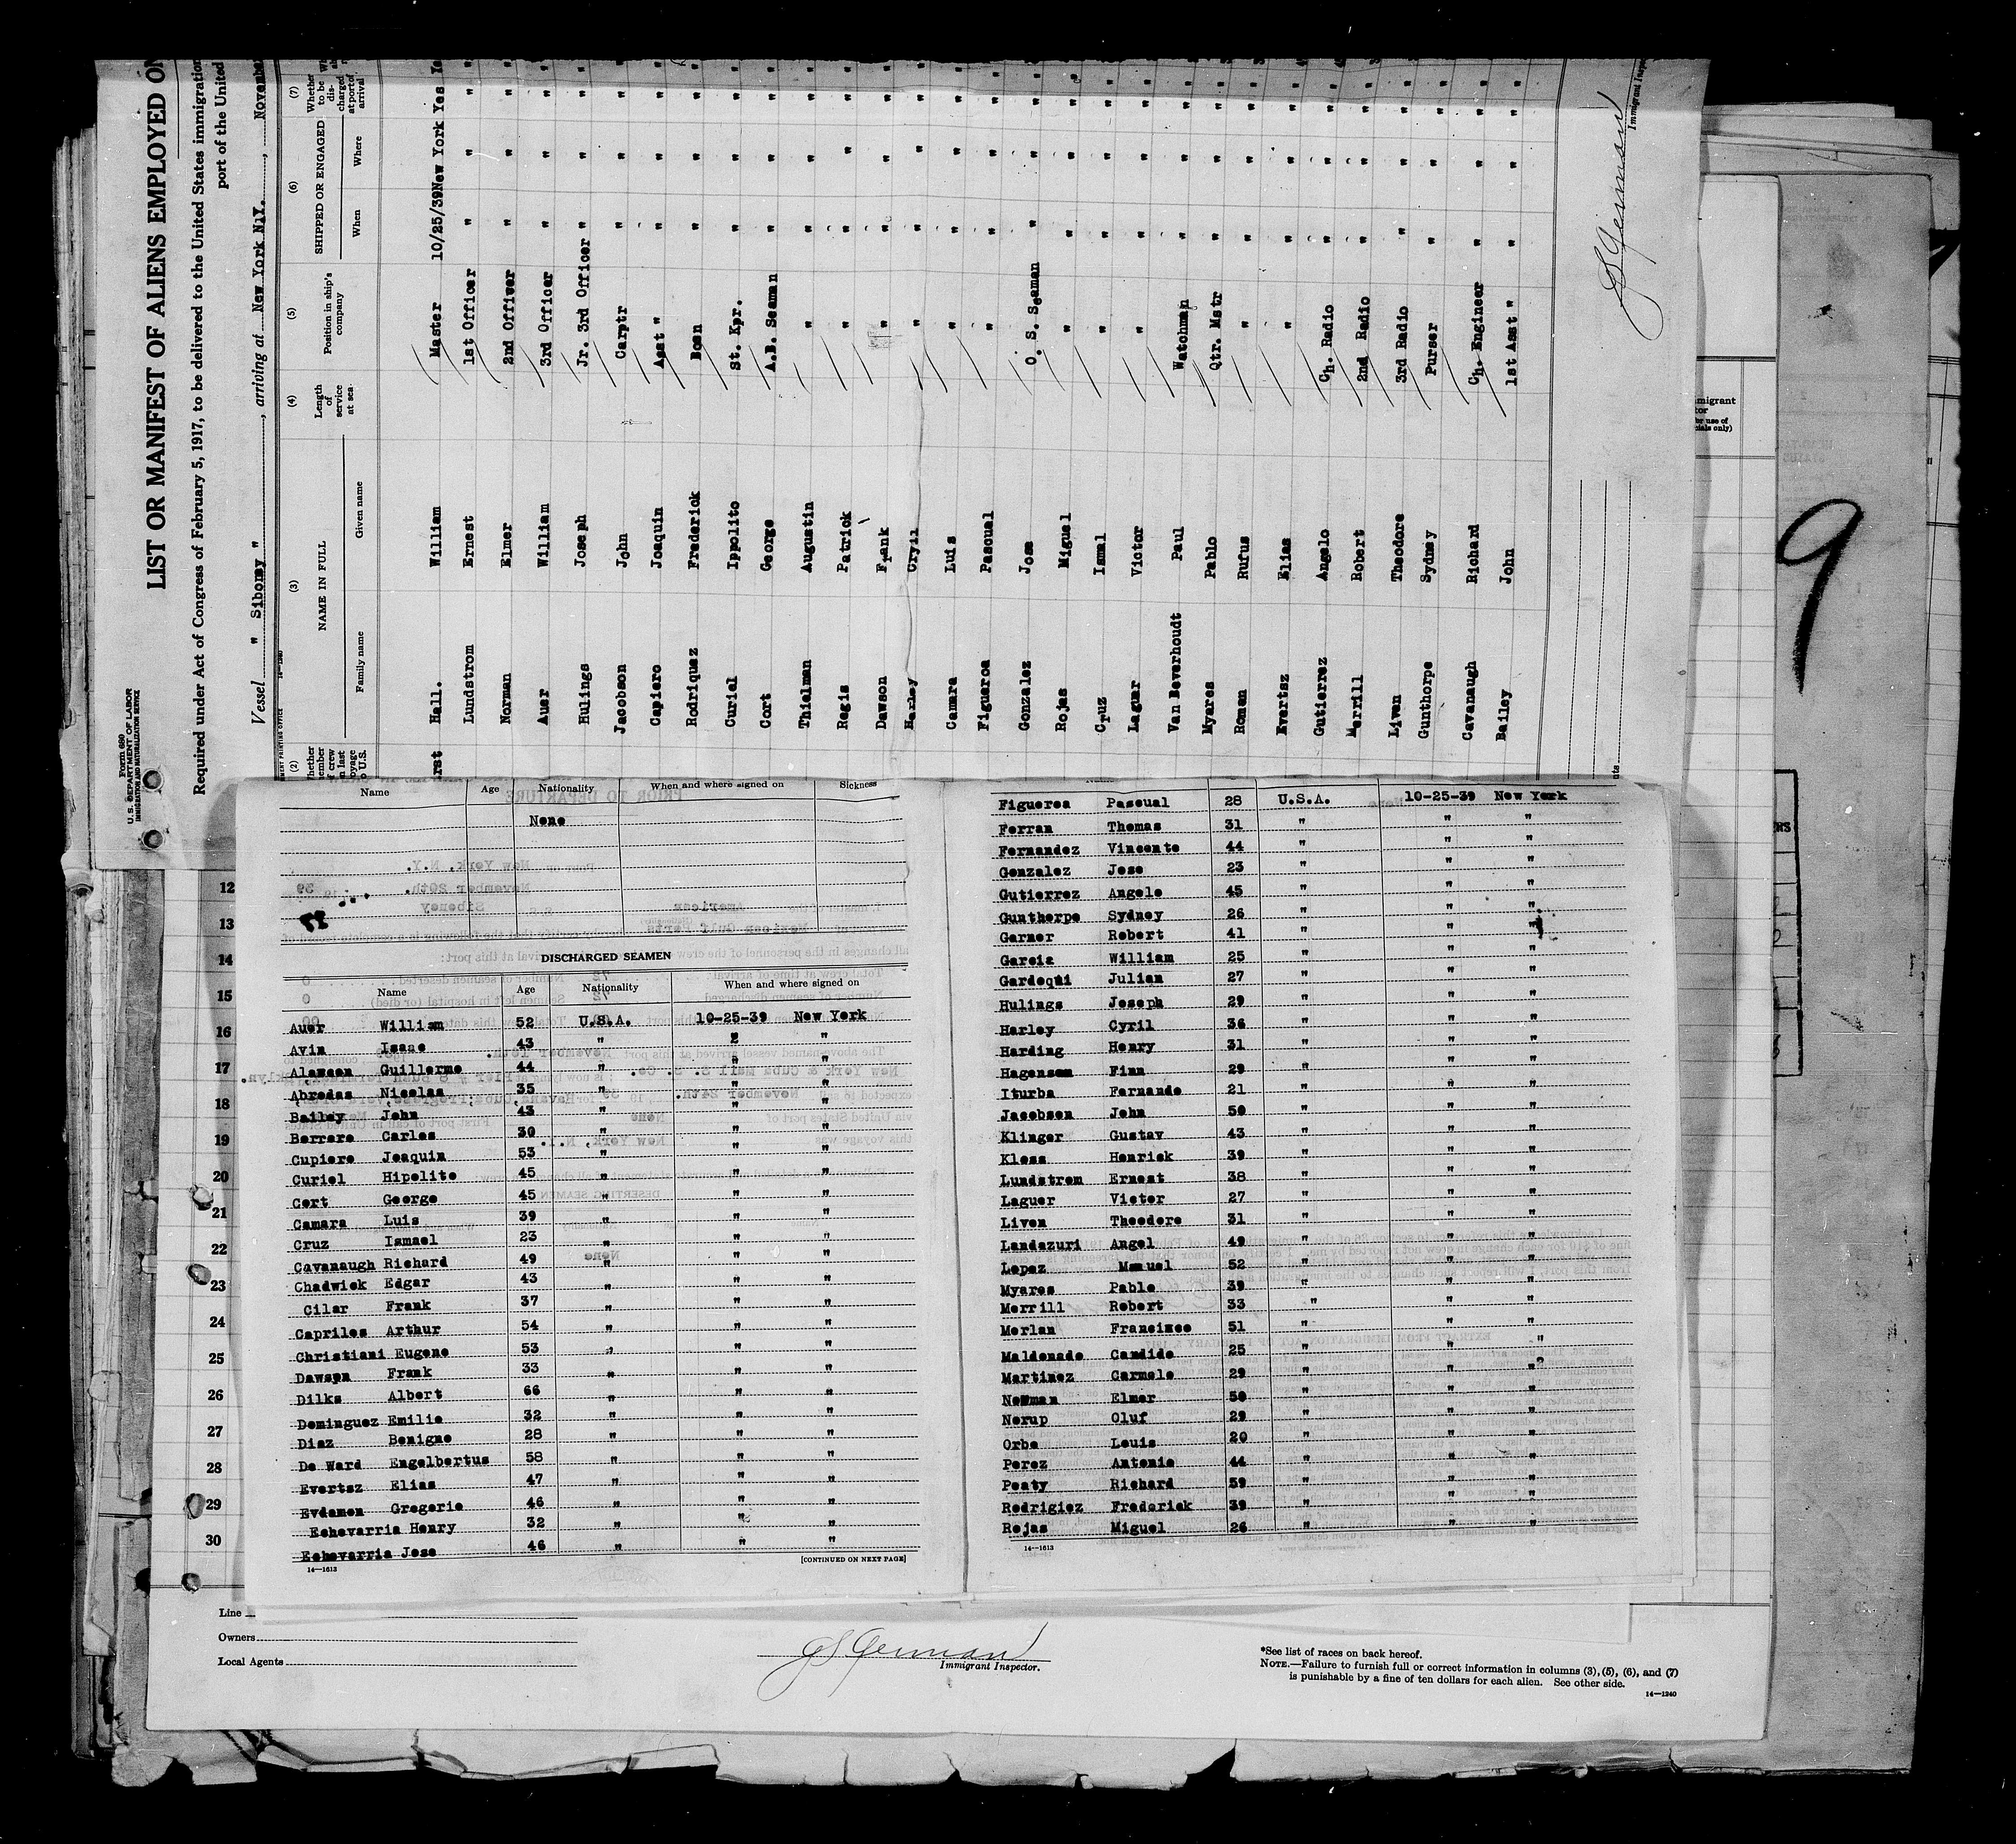 Form 680
U. S. DEPARTMENT OF LABOR
IMMIGRATION AND NATURALIZATION SERVICE
LIST OR MANIFEST OF ALIENS EMPLOYED ON
Required under Act of Congress of February 5, 1917, to be delivered to the United States immigration
port of the United
Vessel " Siboney " , arriving at New York N.Y. , November
(2) (3) (4) (5) (6) (7)
NAME IN FULL
Family name Given name
Length of service at sea
Position in ship's company
SHIPPED OR ENGAGED
When Where
Whether to be discharged at port of arrival
Hall. William Master 10/25/39 New York Yes
Lundstrom Ernest 1st Officer " " "
Norman Elmer 2nd Officer " " "
Auer William 3rd Officer " " "
Hulings Joseph Jr. 3rd Officer " " "
Jacobson John Carptr " " "
Capiero Joaquin Asst " " " "
Rodriquez Frederick Bosn " " "
Curiel Ippolito St. Kpr. " " "
Cort George A.B. Seaman " " "
Thielman Augustin " " " "
Regis Patrick " " " "
Dawson Frank " " " "
Harley Cryil " " " "
Camara Luis " " " "
Figueroa Pascual " " " "
Gonzalez Jose O. S. Seaman " " "
Rojas Miguel " " " "
Cruz Ismal " " " "
Laguer Victor " " " "
Van Beverhoudt Paul Watchman " " "
Myares Pablo Qtr. Mstr " " "
Roman Rufus " " " "
Evertsz Elias " " " "
Gutierrez Angelo Ch. Radio " " "
Merrill Robert 2nd Radio " " "
Liven Theodore 3rd Radio " " "
Gunthorpe Sydney Purser " " "
Cavanaugh Richard Ch. Engineer " " "
Bailey John 1st Asst " " " "
Immigrant Inspector
9
Name Age Nationality When and where signed on Sickness
None
DISCHARGED SEAMEN
Name Age Nationality When and where signed on
Auer William 52 U.S.A. 10-25-39 New York
Avin Isaac 43 " " "
Alamsen Guillermo 44 " " "
Abredas Nicolas 35 " " "
Bailey John 43 " " "
Berrare Carlos 30 " " "
Cupiero Joaquin 53 " " "
Curiel Hipolito 45 " " "
Cort George 45 " " "
Camara Luis 39 " " "
Cruz Ismael 23 " " "
Cavanaugh Richard 49 " " "
Chadwick Edgar 43 " " "
Cilar Frank 37 " " "
Capriles Arthur 54 " " "
Christiani Eugene 53 " " "
Dawson Frank 33 " " "
Dilks Albert 66 " " "
Dominguez Emilio 32 " " "
Diaz Benigno 28 " " "
De Ward Engelbertus 58 " " "
Evertsz Elias 47 " " "
Evdamon Gregorio 46 " " "
Echevarria Henry 32 " " "
Echevarria Jose 46 " " "
14—1613
[CONTINUED ON NEXT PAGE]
Figueroa Pascual 28 U.S.A. 10-25-39 New York
Ferran Thomas 31 " " "
Fernandez Vincente 44 " " "
Gonzalez Jose 23 " " "
Gutierrez Angelo 45 " " "
Gunthorpe Sydney 26 " " "
Garner Robert 41 " " "
Garcia William 25 " " "
Gardoqui Julian 27 " " "
Hulings Joseph 29 " " "
Harley Cyril 36 " " "
Harding Henry 31 " " "
Hagensen Finn 29 " " "
Iturba Fernando 21 " " "
Jacobson John 50 " " "
Klinger Gustav 43 " " "
Kloss Henrick 39 " " "
Lundstrom Ernest 38 " " "
Laguer Victor 27 " " "
Liven Theodore 31 " " "
Landazuri Angel 49 " " "
Lopez Manuel 52 " " "
Myares Pablo 39 " " "
Merrill Robert 33 " " "
Merlan Francisco 51 " " "
Maldonado Candido 25 " " "
Martinez Carmelo 29 " " "
Newman Elmer 50 " " "
Norup Oluf 29 " " "
Orbe Louis 20 " " "
Perez Antonio 44 " " "
Peaty Richard 59 " " "
Rodrigiez Frederick 39 " " "
Rojas Miguel 26 " " "
14—1613
12
13
14
15
16
17
18
19
20
21
22
23
24
25
26
27
28
29
30
Line
Owners
Local Agents
Immigrant Inspector.
*See list of races on back hereof.
NOTE.—Failure to furnish full or correct information in columns (3), (5), (6), and (7)
is punishable by a fine of ten dollars for each alien. See other side.
14—1240